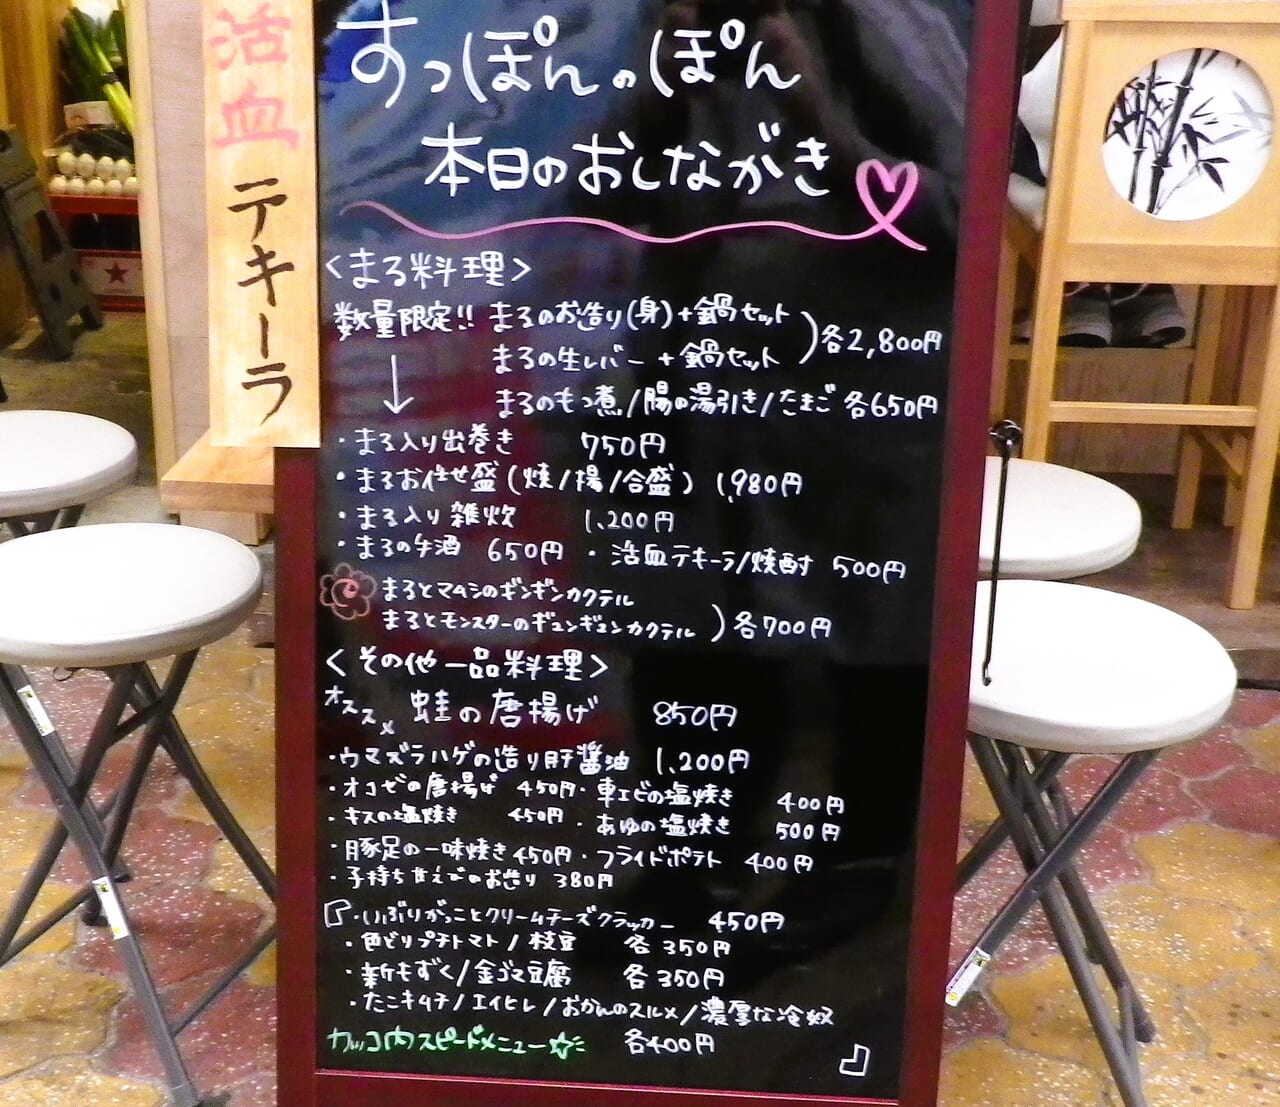 活血テキーラ
すっぽんのぽん
本日のおしながき
<まる料理>
数量限定!! まるのお造り(身)+鍋セット
まるの生レバー+鍋セット ) 各2,800円
まるのもつ煮/腸の湯引き/たまご 各650円
・まる入り出巻き 750円
・まるお任せ盛(焼/揚/合盛) 1,980円
・まる入り雑炊 1,200円
・まるの生酒 650円 ・活血テキーラ/焼酎 500円
まるとマムシのギンギンカクテル
まるとモンスターのギュンギュンカクテル ) 各700円
<その他一品料理>
オススメ 蛙の唐揚げ 850円
・ウマズラハゲの造り肝醤油 1,200円
・オコゼの唐揚げ 450円・車エビの塩焼き 400円
・キスの塩焼き 450円 ・あゆの塩焼き 500円
・豚足の一味焼き 450円・フライドポテト 400円
・子持ち甘えびのお造り 380円
「・いぶりがっことクリームチーズクラッカー 450円
・色どりプチトマト/枝豆 各350円
・新もずく/金ゴマ豆腐 各350円
・たこキムチ/エイヒレ/おかんのスルメ/濃厚な冷奴
カッコ内スピードメニュー☆ 各400円 」